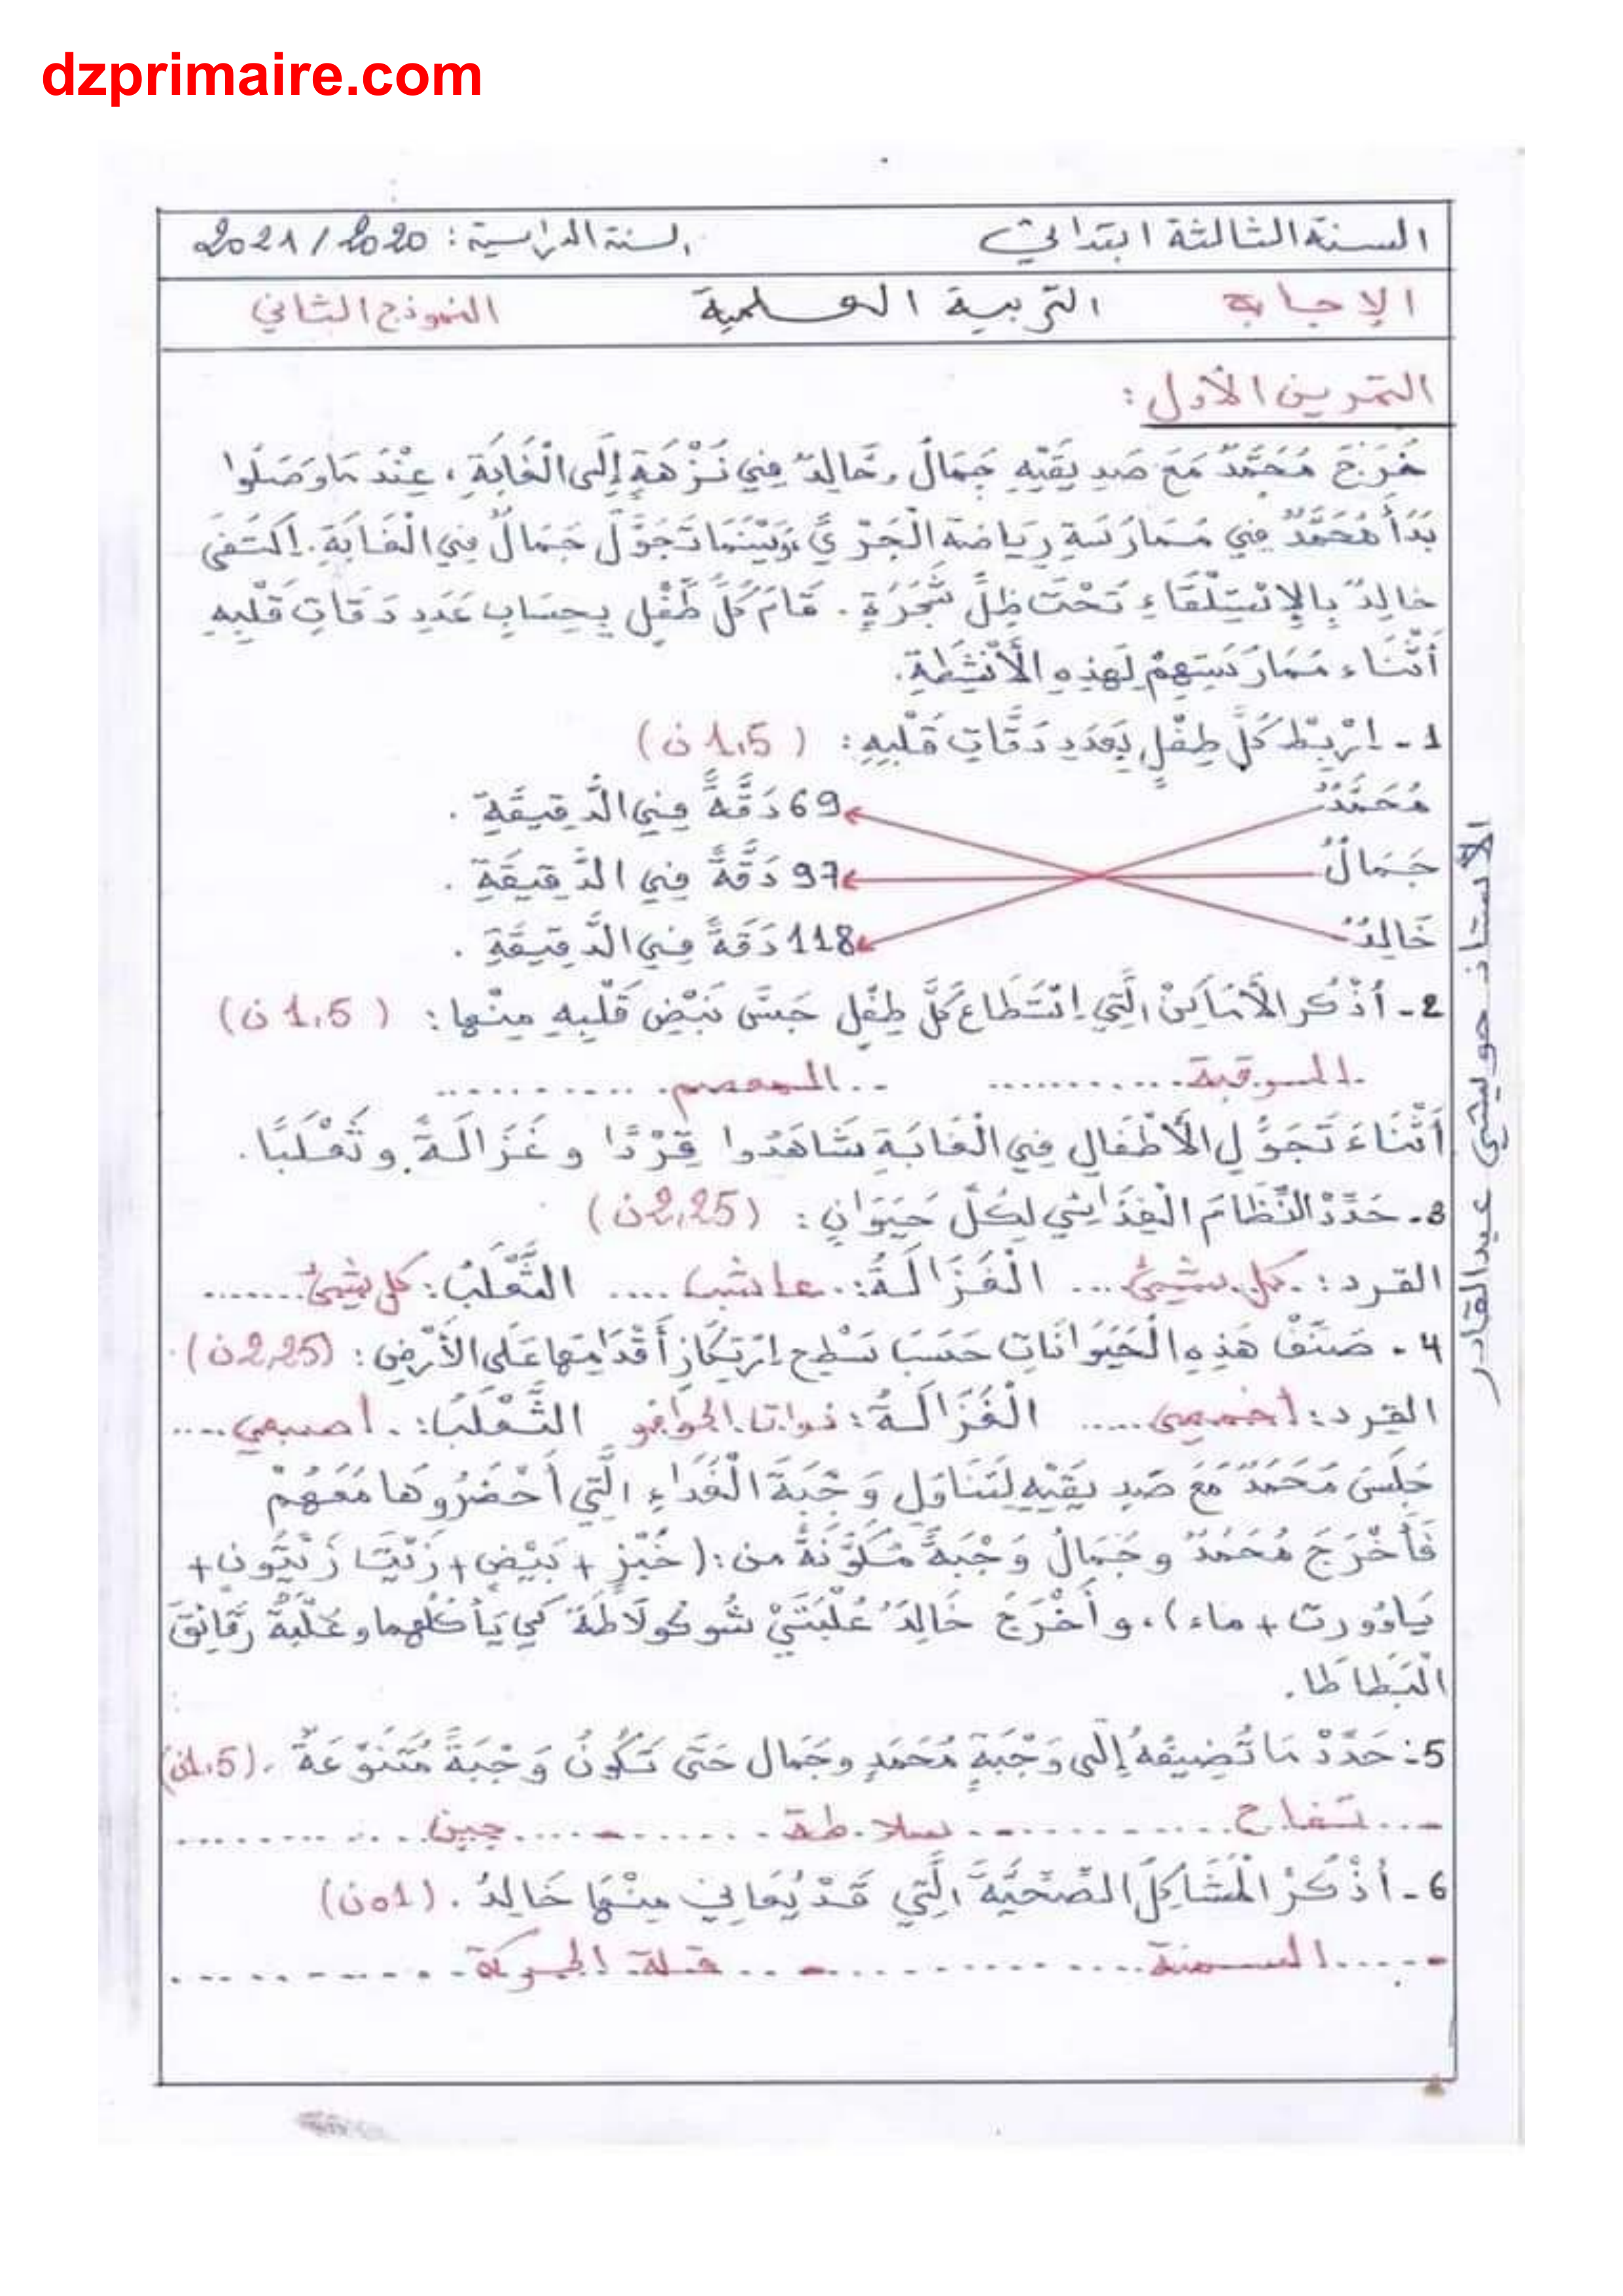 dzprimaire.com
السنة الثالثة ابتدائي السنة الدراسية : 2020/2021
الإجابة التربية العلمية النموذج الثاني
التمرين الأول :
خَرَجَ مُحَمَّدٌ مَعَ صَدِيقَيْهِ جَمَالٌ وَخَالِدٌ فِي نُزْهَةٍ إِلَى الْغَابَةِ ، عِنْدَمَا وَصَلُوا
بَدَأَ مُحَمَّدٌ فِي مُمَارَسَةِ رِيَاضَةِ الْجَرْيِ ، وَبَيْنَمَا تَجَوَّلَ جَمَالٌ فِي الْغَابَةِ . اِكْتَفَى
خَالِدٌ بِالِاسْتِلْقَاءِ تَحْتَ ظِلِّ شَجَرَةٍ . قَامَ كُلُّ طِفْلٍ بِحِسَابِ عَدَدِ دَقَّاتِ قَلْبِهِ
أَثْنَاءَ مُمَارَسَتِهِمْ لِهَذِهِ الْأَنْشِطَةِ .
1 - اِرْبِطْ كُلَّ طِفْلٍ بِعَدَدِ دَقَّاتِ قَلْبِهِ : ( 1,5 ن )
مُحَمَّدٌ 69 دَقَّةً فِي الدَّقِيقَةِ .
جَمَالٌ 97 دَقَّةً فِي الدَّقِيقَةِ .
خَالِدٌ 118 دَقَّةً فِي الدَّقِيقَةِ .
2 - أُذْكُرِ الْأَمَاكِنَ الَّتِي اِسْتَطَاعَ كُلُّ طِفْلٍ جَسَّ نَبْضِ قَلْبِهِ مِنْهَا : ( 1,5 ن )
الرقبة ........... - المعصم ...........
أَثْنَاءَ تَجَوُّلِ الْأَطْفَالِ فِي الْغَابَةِ شَاهَدُوا قِرْدًا و غَزَالَةً و ثَعْلَبًا .
3 - حَدِّدْ النِّظَامَ الْغِذَائِي لِكُلِّ حَيَوَانٍ : ( 2,25 ن )
القرد : كل شيئ .... الْغَزَالَةُ : عاشب .... الثَّعْلَبُ : كل شيئ .......
4 - صَنِّفْ هَذِهِ الْحَيَوَانَاتِ حَسَبَ سَطْحِ اِرْتِكَازِ أَقْدَامِهَا عَلَى الْأَرْضِ : ( 2,25 ن )
القرد : أخمصي ..... الْغَزَالَةُ : ذوات الحوافر الثَّعْلَبُ : أصبعي ....
جَلَسَ مُحَمَّدٌ مَعَ صَدِيقَيْهِ لِتَنَاوُلِ وَجْبَةَ الْغَدَاءِ الَّتِي أَحْضَرُوهَا مَعَهُمْ
فَأَخْرَجَ مُحَمَّدٌ و جَمَالٌ وَجْبَةً مُكَوَّنَةً من : ( خُبْزٍ + بَيْضٍ + زَيْتَ زَيْتُونٍ +
يَاؤُورت + ماء ) ، و أَخْرَجَ خَالِدٌ عُلْبَتَيْ شُوكُولَاطَة كَيْ يَأْكُلَهما و عُلْبَةُ رَقَائِقَ
الْبَطَاطَا .
5 - حَدِّدْ مَا تُضِيفُهُ إِلَى وَجْبَةِ مُحَمَّدٍ و جَمَال حَتَّى تَكُونَ وَجْبَةً مُتَنَوِّعَةً . ( 1,5 ن )
- تفاح ........... - سلاطة ........ - جبن ...........
6 - أُذْكُرْ الْمَشَاكِلَ الصِّحِّيَّةَ الَّتِي قَدْ يُعَانِي مِنْهَا خَالِدُ . ( 01 ن )
- السمنة ............ - قلة الحركة ...........
الأستاذ حويشي عبد القادر